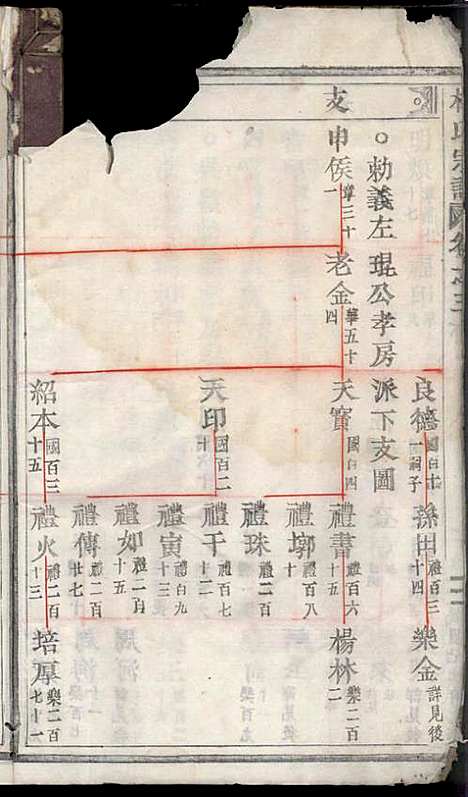 氏宗譜 卷之三
良德 國百十一祠子 孫田 禮百三十四 樂金 詳見後
○勅義左琨公孝房派下支圖
支申侯 章三十一 老金 華五十四 天寶 國百四 禮書 禮百六十五 楊林 樂二百二
禮墎 禮百八十
禮珠 禮二百
天印 國百二十 禮千 禮百七十二
禮寅 禮百九十三
禮如 禮二百十五
禮傳 禮二百廿七
紹本 國百三十五 禮火 禮二百十三 培厚 樂二百七十一